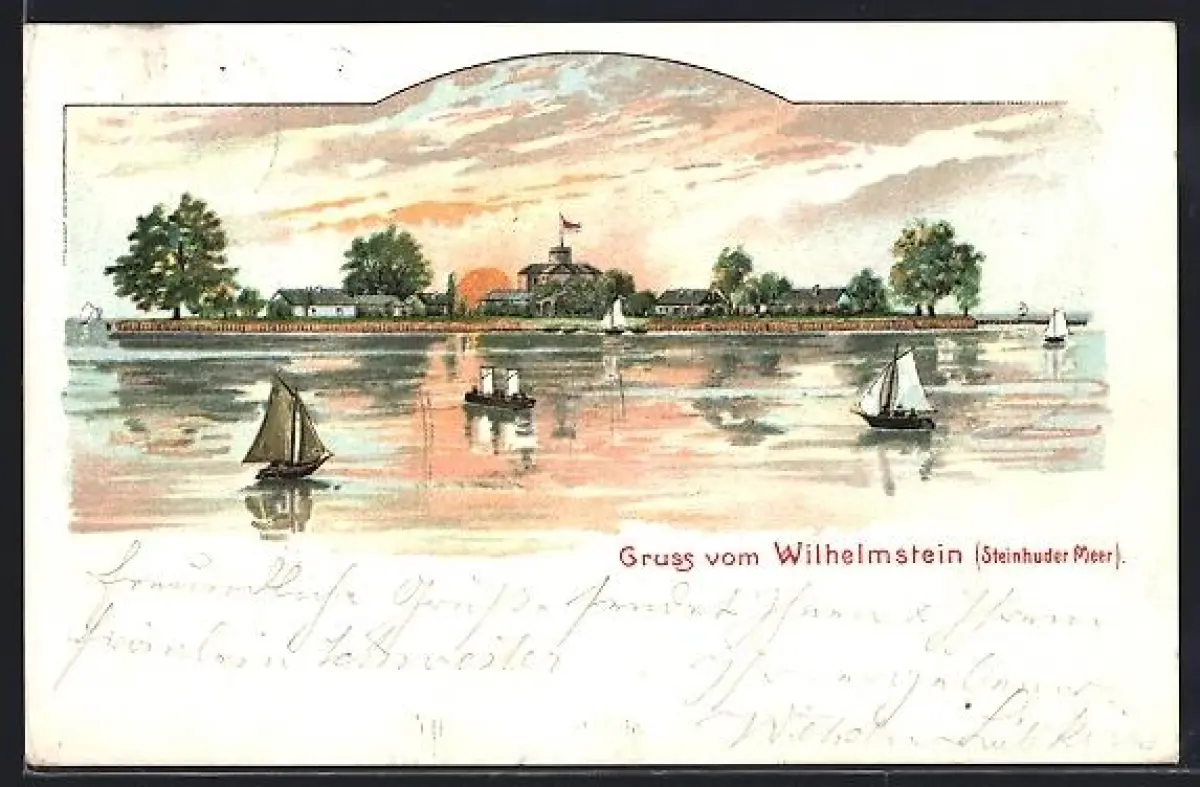 Gruss vom Wilhelmstein (Steinhuder Meer).
Freundliche Grüße sendet Ihnen & Ihrem
Fräulein Schwester
Ihr ergebener
Wilhelm